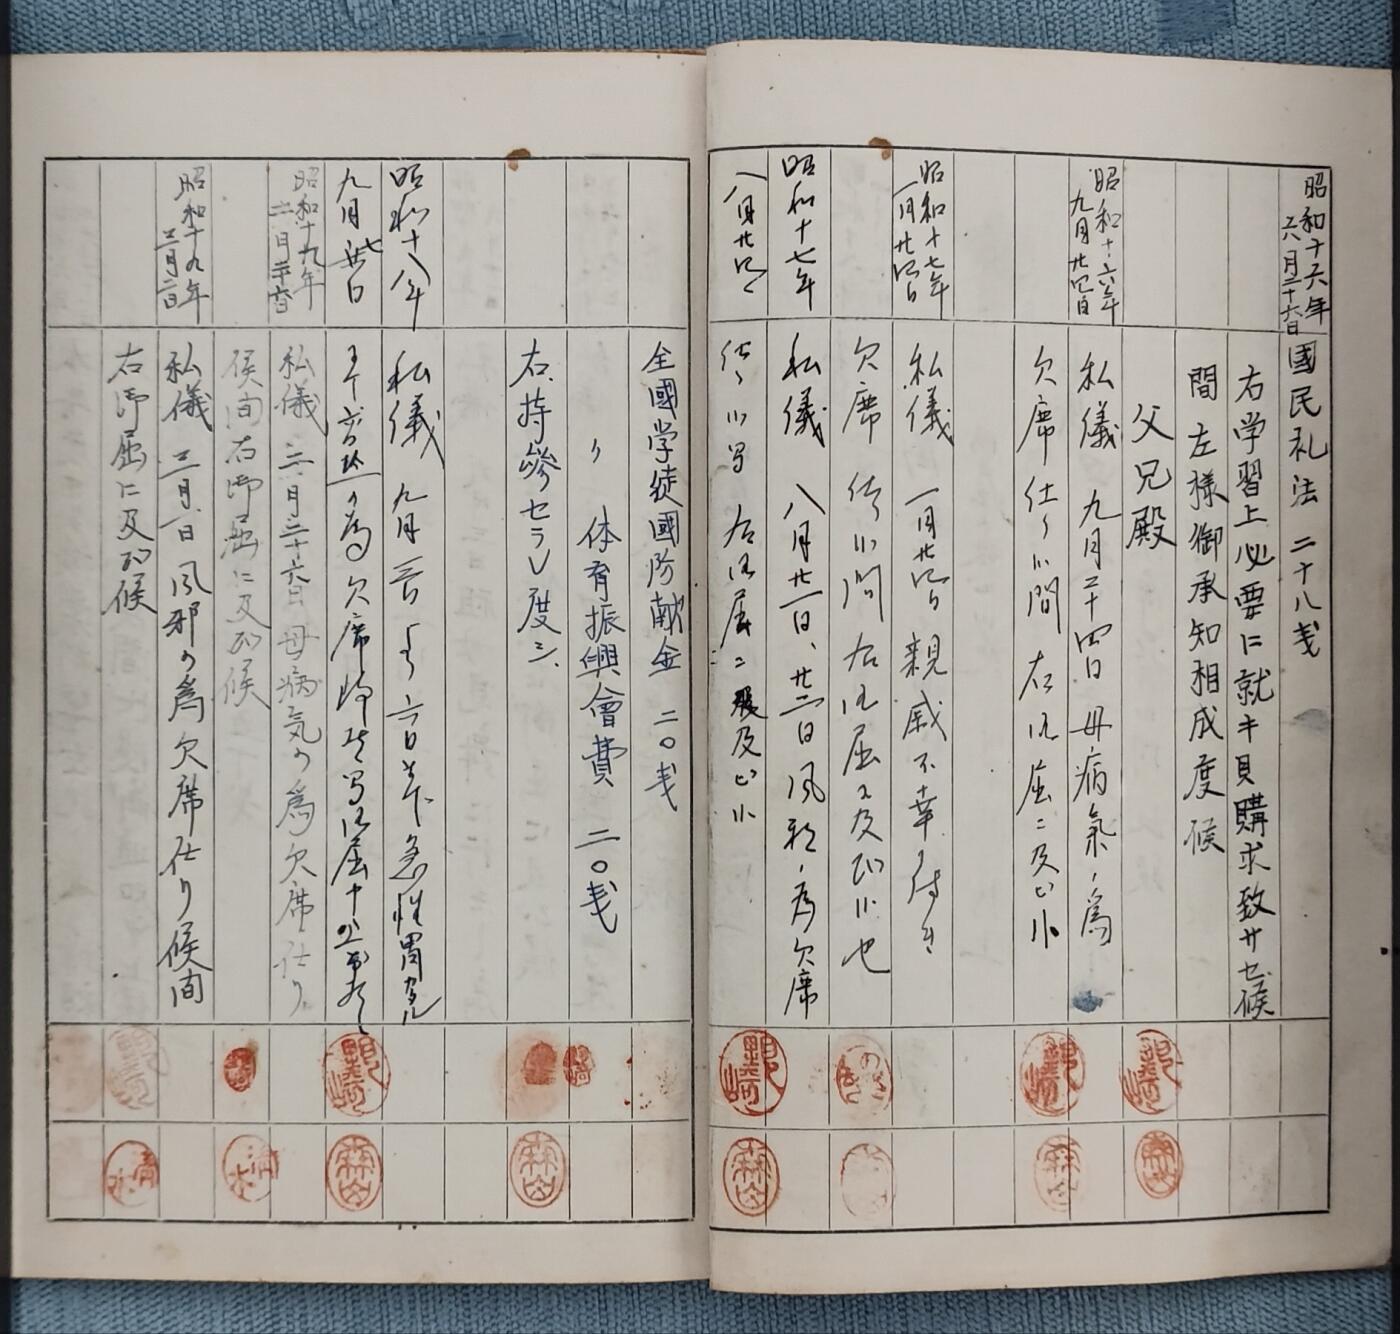 昭和十六年
六月二十六日
國民礼法 二十八銭
右学習上必要に就キ貝購求致サセ候
間左様御承知相成度候
父兄殿
昭和十六年
九月廿四日
私儀 九月二十四日 母病氣ノ為
欠席仕り候間 右御届ニ及ビ候
昭和十七年
一月廿四日
私儀 一月廿四日 親戚不幸
欠席 仕候間 右御届ニ及ビ候也
昭和十七年
八月廿
私儀 八月廿一日、廿二日 風邪ノ為欠席
右御届ニ及ビ候
全國学徒國防献金 二〇銭
〃 体育振興會費 二〇銭
右持參セラレ度シ、
昭和十八年
九月
私儀 九月 六日 急性胃
ノ為欠席
昭和十九年
二月二十六日
私儀 二月二十六日母病気の為欠席仕り
候間右御届に及び候
昭和十九年
三月一日
私儀 三月一日 風邪の為欠席仕り候間
右御届に及び候
野崎
森山
清水